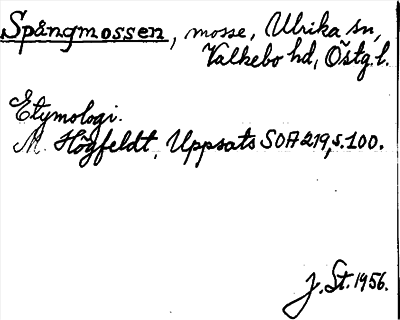 Spångmossen, mosse, Ulrika sn,
Valkebo hd, Östg. l.
Etymologi.
M. Högfeldt, Uppsats SOA 219, s. 100.
J. St. 1956.